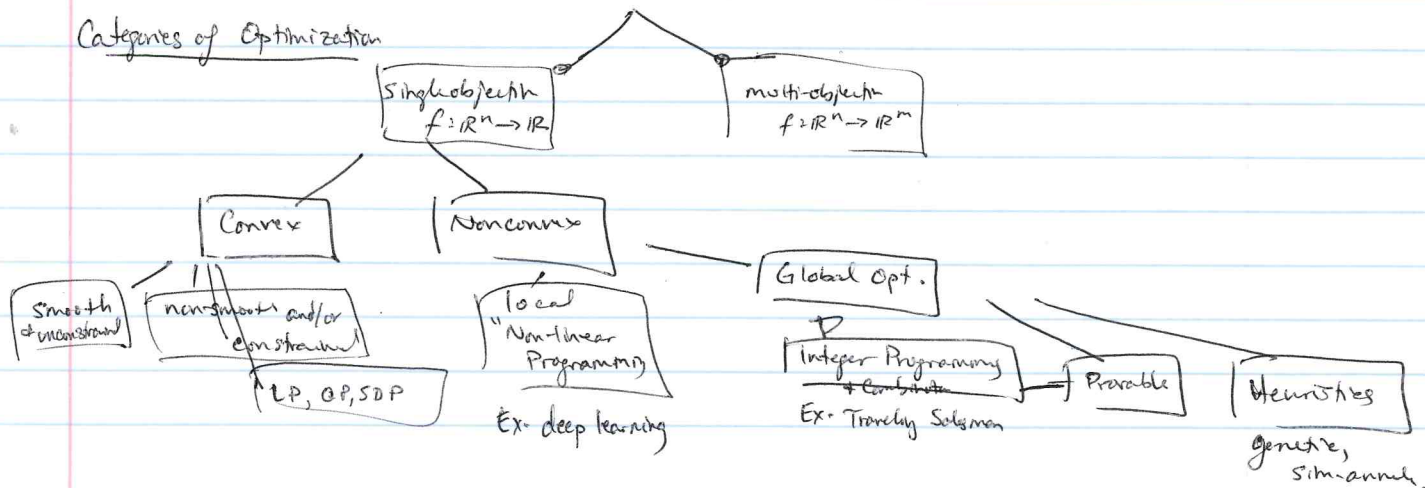 Categories of Optimization
Single objective
f: ℝⁿ → ℝ
multi-objective
f: ℝⁿ → ℝᵐ
Convex
Nonconvex
Global Opt.
smooth
+ unconstrained
non-smooth and/or
constrained
LP, QP, SDP
local
"Non-linear
Programming
Ex. deep learning
Integer Programming
+ Combinato
Ex. Traveling Salesman
Provable
Heuristics
genetic,
sim-anneal